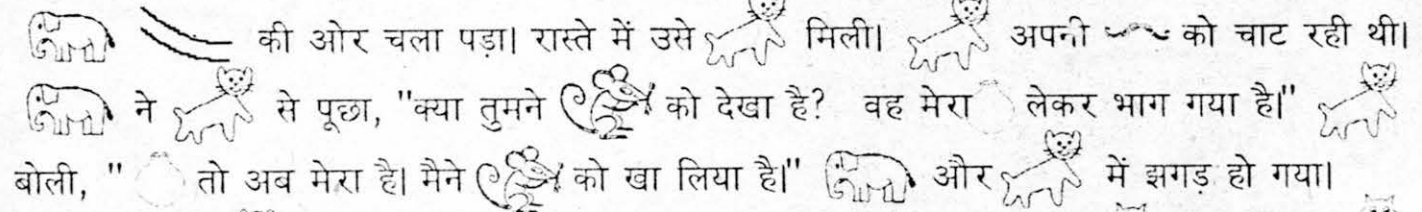 की ओर चला पड़ा। रास्ते में उसे मिली। अपनी को चाट रही थी।
ने से पूछा, "क्या तुमने को देखा है? वह मेरा लेकर भाग गया है।"
बोली, " तो अब मेरा है। मैने को खा लिया है।" और में झगड़ हो गया।